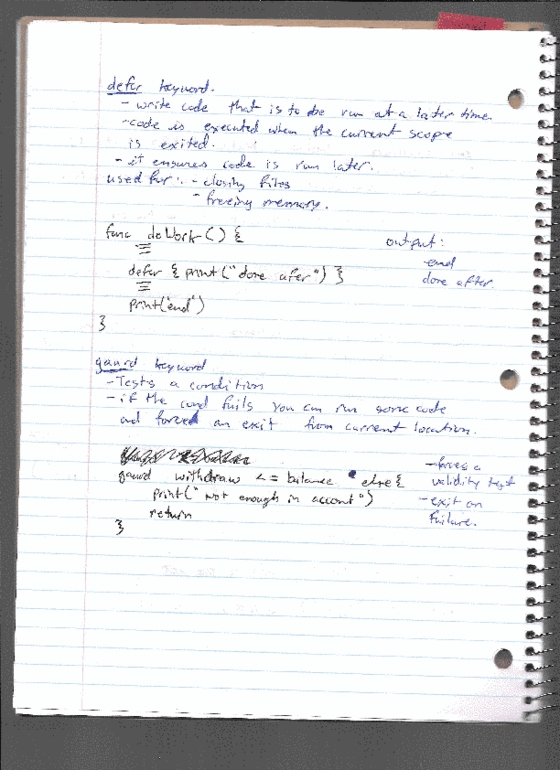 defer keyword.
- write code that is to be run at a later time
- code is executed when the current scope
is exited.
- it ensures code is run later.
used for: - closing files
- freeing memory.
func doWork() {
defer { print("done after") }
print("end")
}
output:
end
done after
gaurd keyword
- Tests a condition
- if the cond fails you can run some code
and forced an exit from current location.
gaurd withdraw <= balance else {
print("not enough in account")
return
}
- forces a
validity test
- exit on
failure.